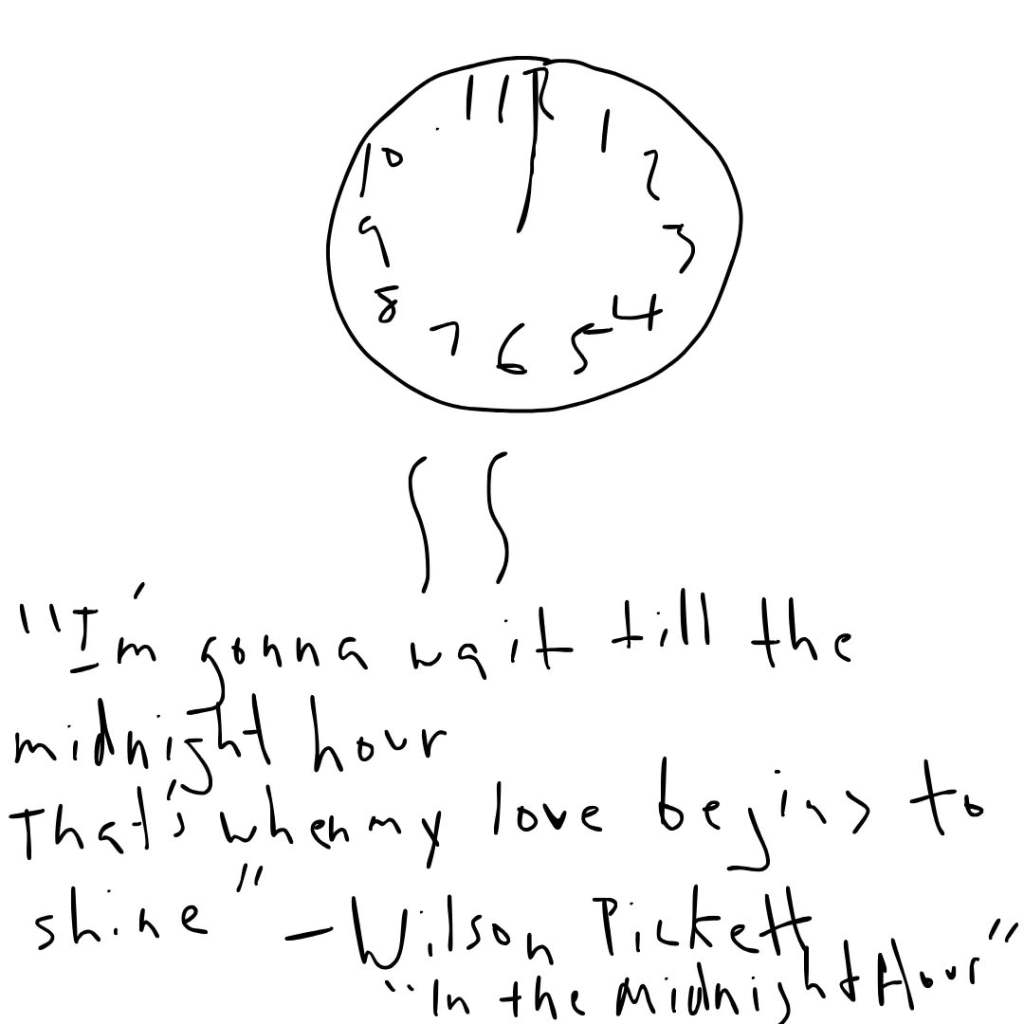 11 12 1
10 2
9 3
8 4
7 6 5
"I'm gonna wait till the
midnight hour
That's when my love begins to
shine"
- Wilson Pickett
"In the Midnight Hour"